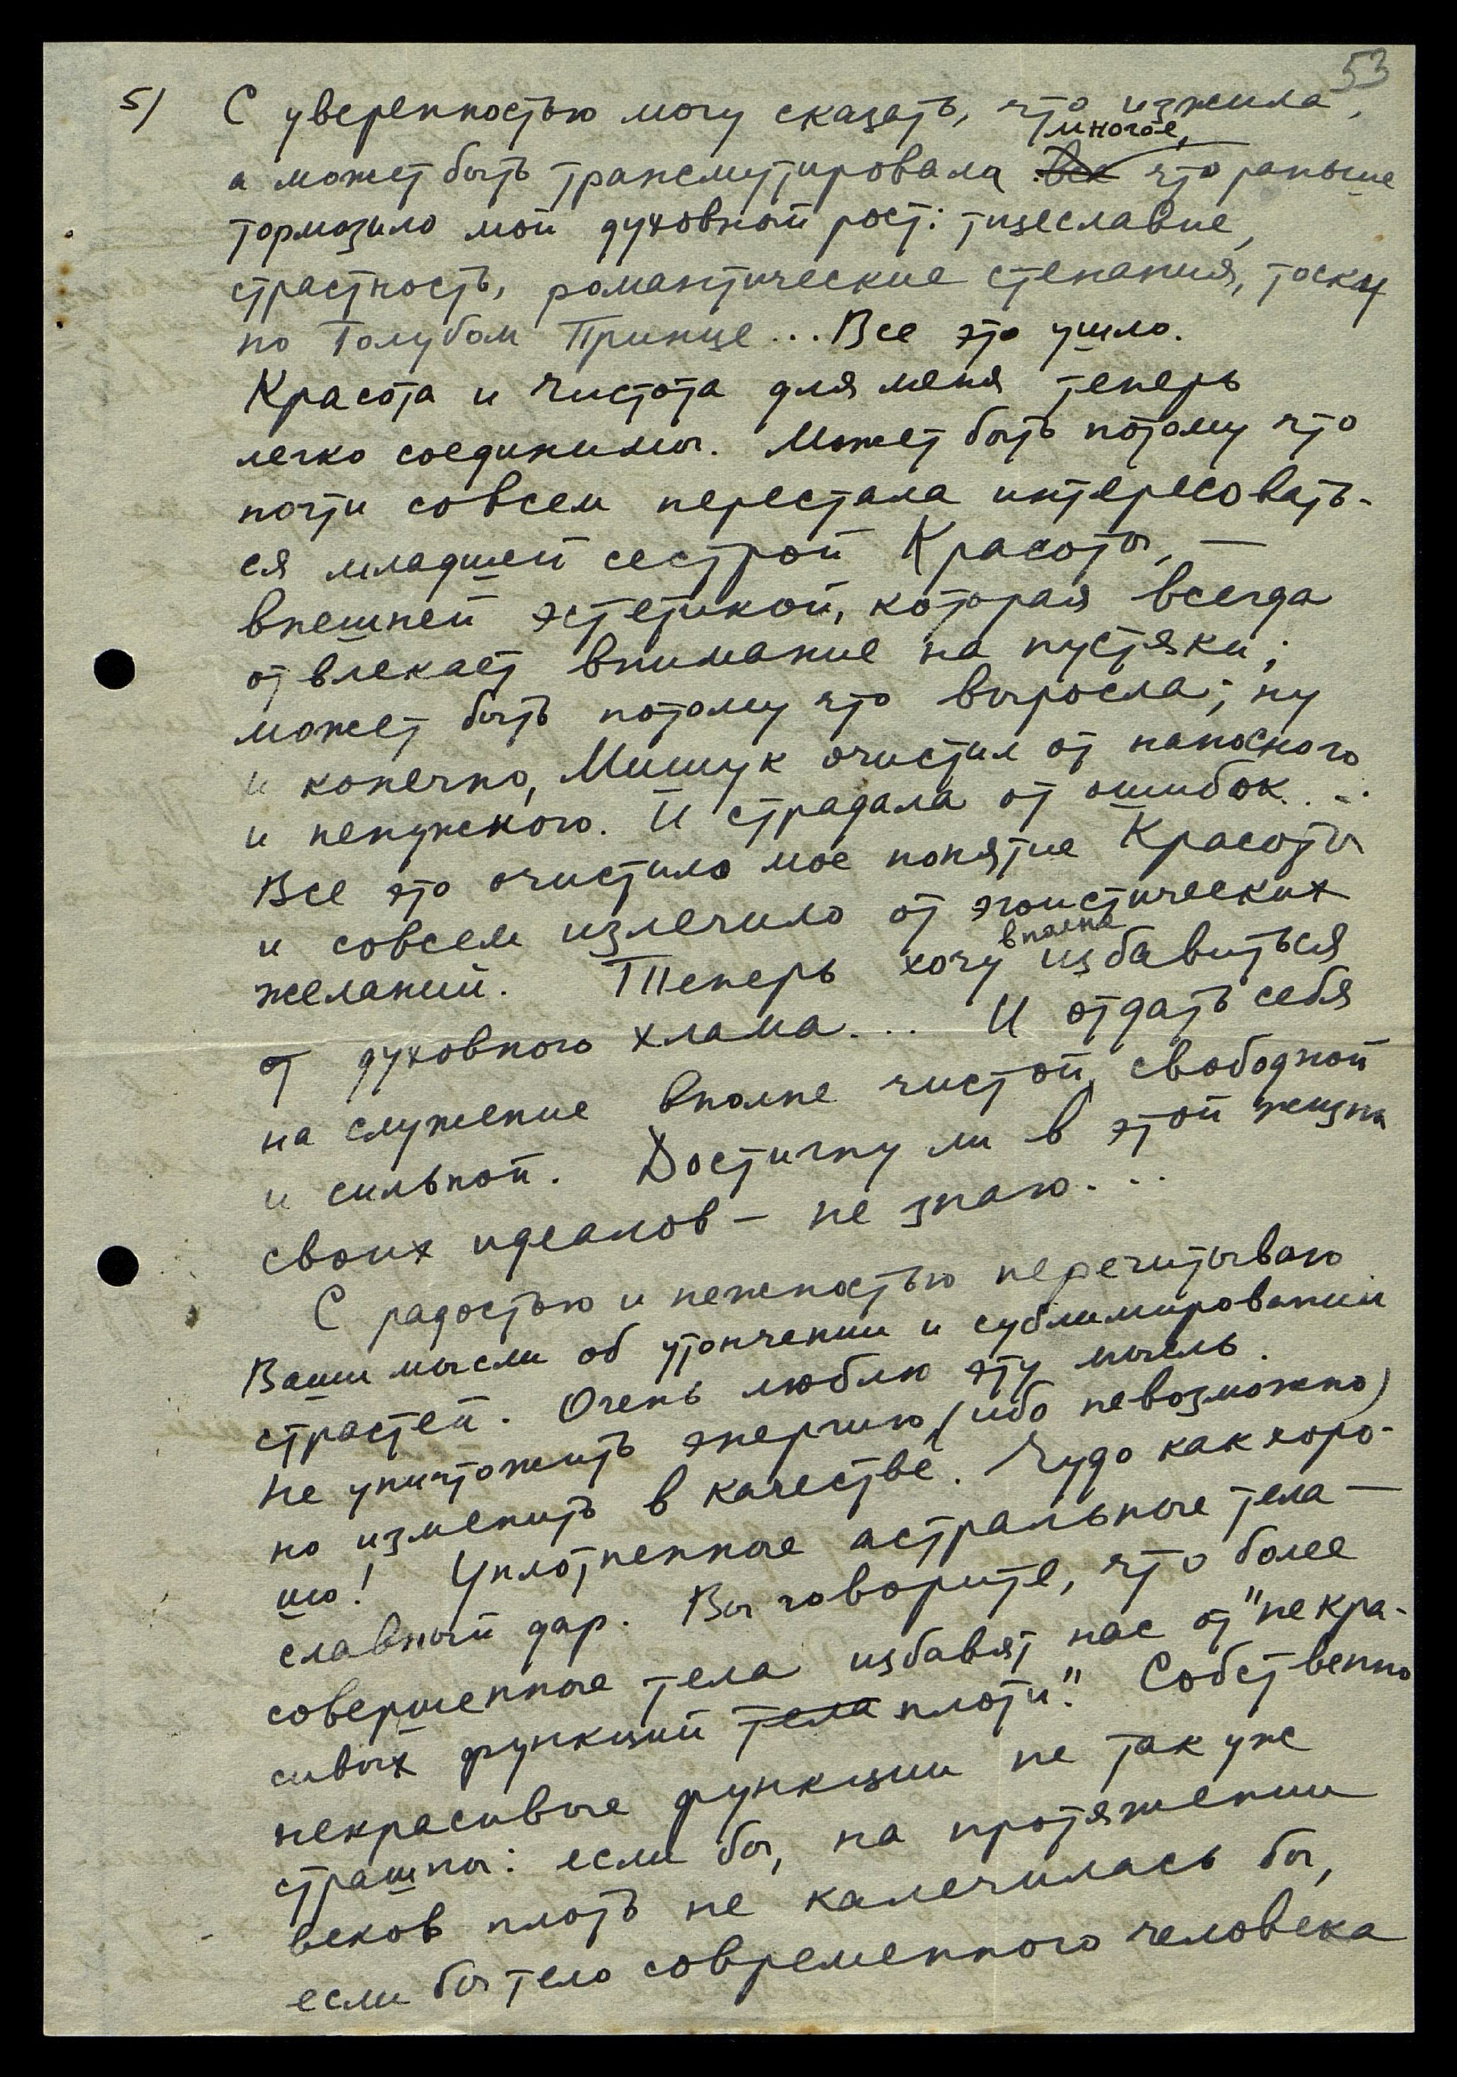 53
5) С уверенностью могу сказать, что изжила,
многое,
а может быть трансмутировала все что раньше
тормозило мой духовный рост: тщеславие,
страстность, романтические стенания, тоску
по Голубом Принце... Все это ушло.
Красота и Чистота для меня теперь
легко соединимы. Может быть потому что
почти совсем перестала интересовать-
ся младшей сестрой Красоты, —
внешней эстетикой, которая всегда
отвлекает внимание на пустяки;
может быть потому что выросла; ну
и конечно, Мишук очистил от наносного
и ненужного. И страдала от ошибок...
Все это очистило мое понятие Красоты
и совсем излечило от эгоистических
вполне
желаний. Теперь хочу избавиться
от духовного хлама... И отдать себя
на служение вполне чистой, свободной
и сильной. Достигну ли в этой жизни
своих идеалов — не знаю...
С радостью и нежностью перечитываю
Ваши мысли об утончении и сублимировании
страстей. Очень люблю эту мысль.
Не уничтожить энергию (ибо невозможно)
но изменить в качестве. Чудо как хоро-
шо! Уплотненные астральные тела —
славный дар. Вы говорите, что более
совершенные тела избавят нас от "некра-
сивых функций тела плоти". Собственно
некрасивые функции не так уж
страшны: если бы, на протяжении
веков плоть не калечилась бы,
если бы тело современного человека